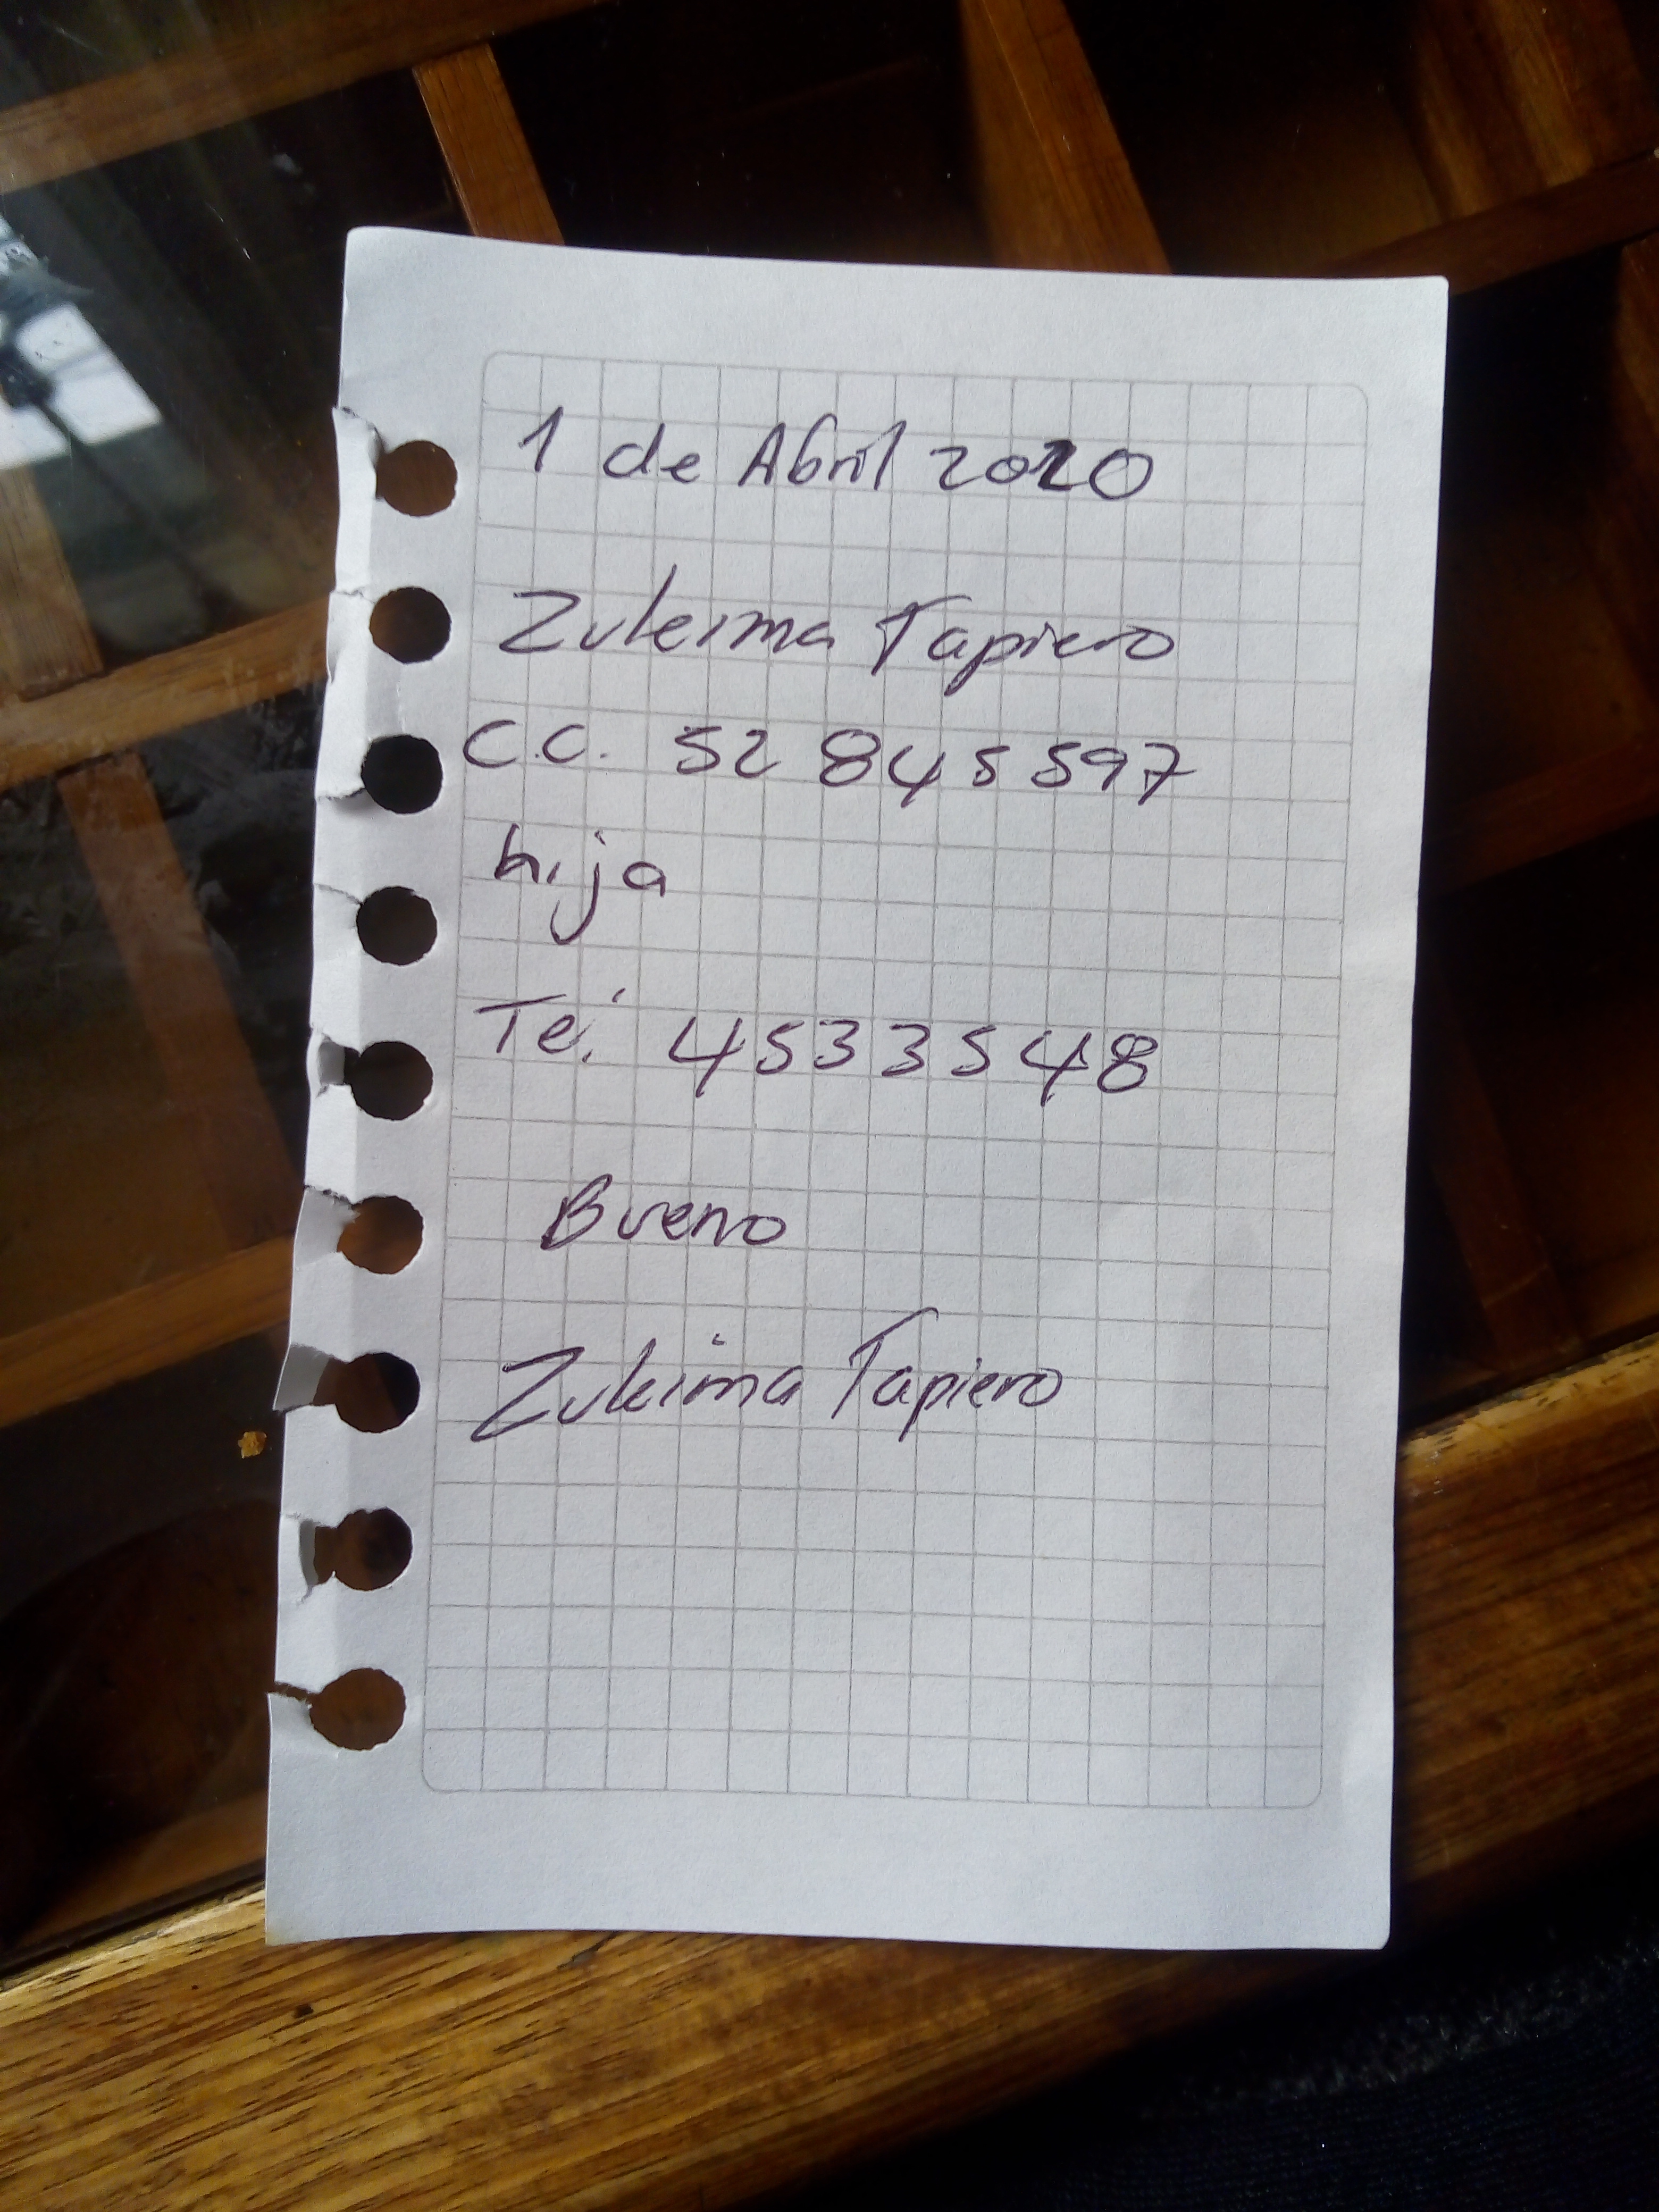 1 de Abril 2020
Zuleima Tapiero
C.C. 52 845 597
hija
Te: 4533548
Bueno
Zuleima Tapiero